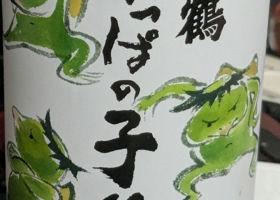 鶴
っぱの子